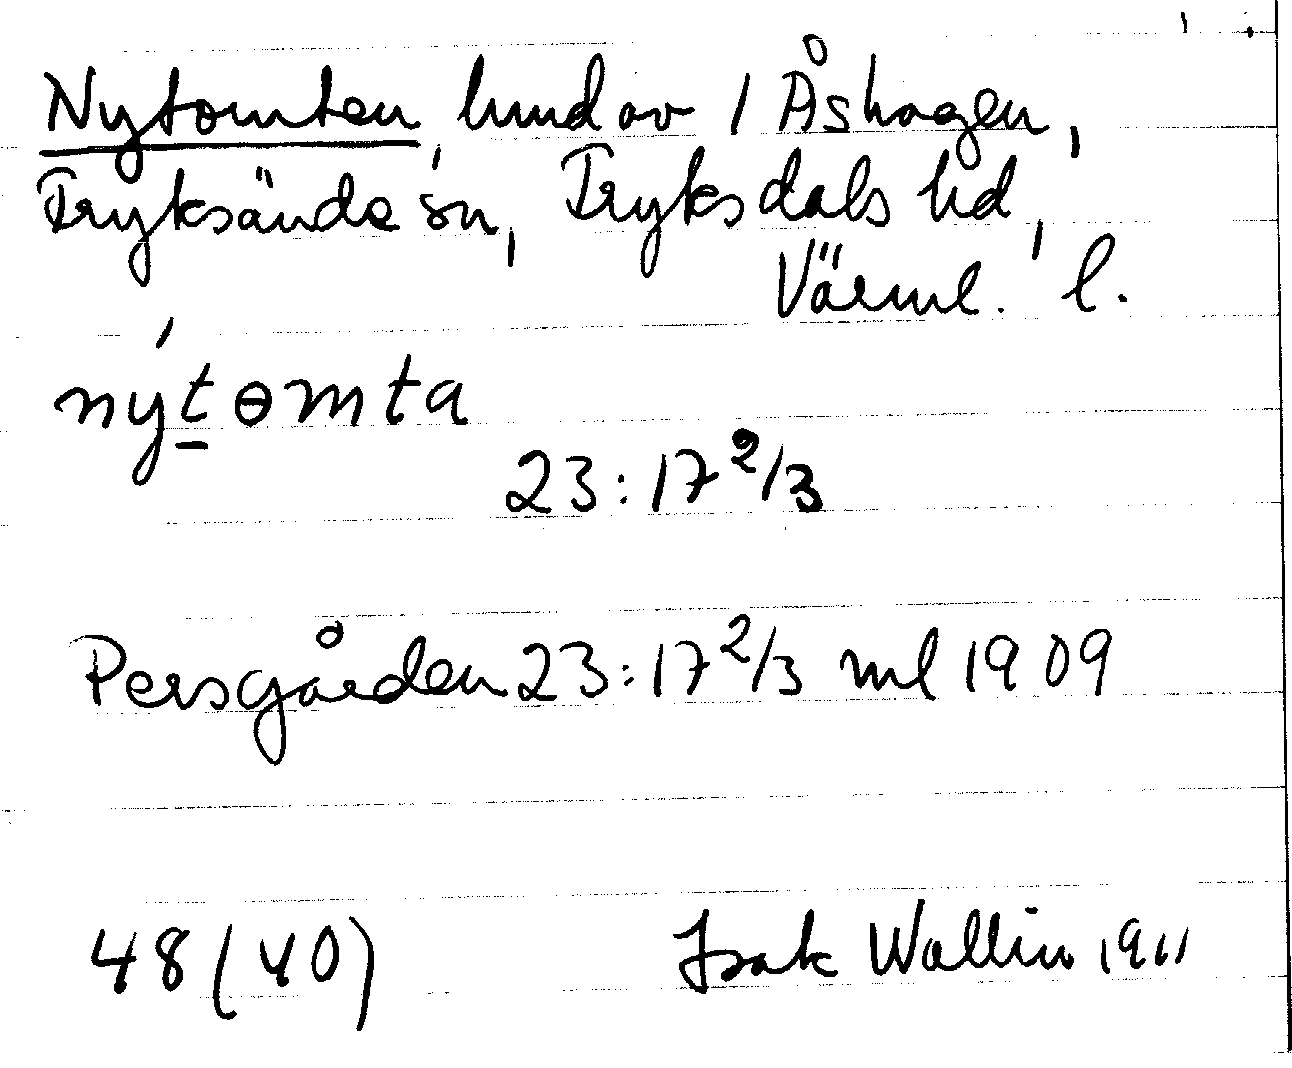 Nytomten, hmd av 1 Åshagen,
Fryksände sn, Fryksdals hd,
Värml. l.
nýtɵmta
23:17 2/3
Persgården 23:17 2/3 ml 1909
48 (40) Isak Wallin 1911